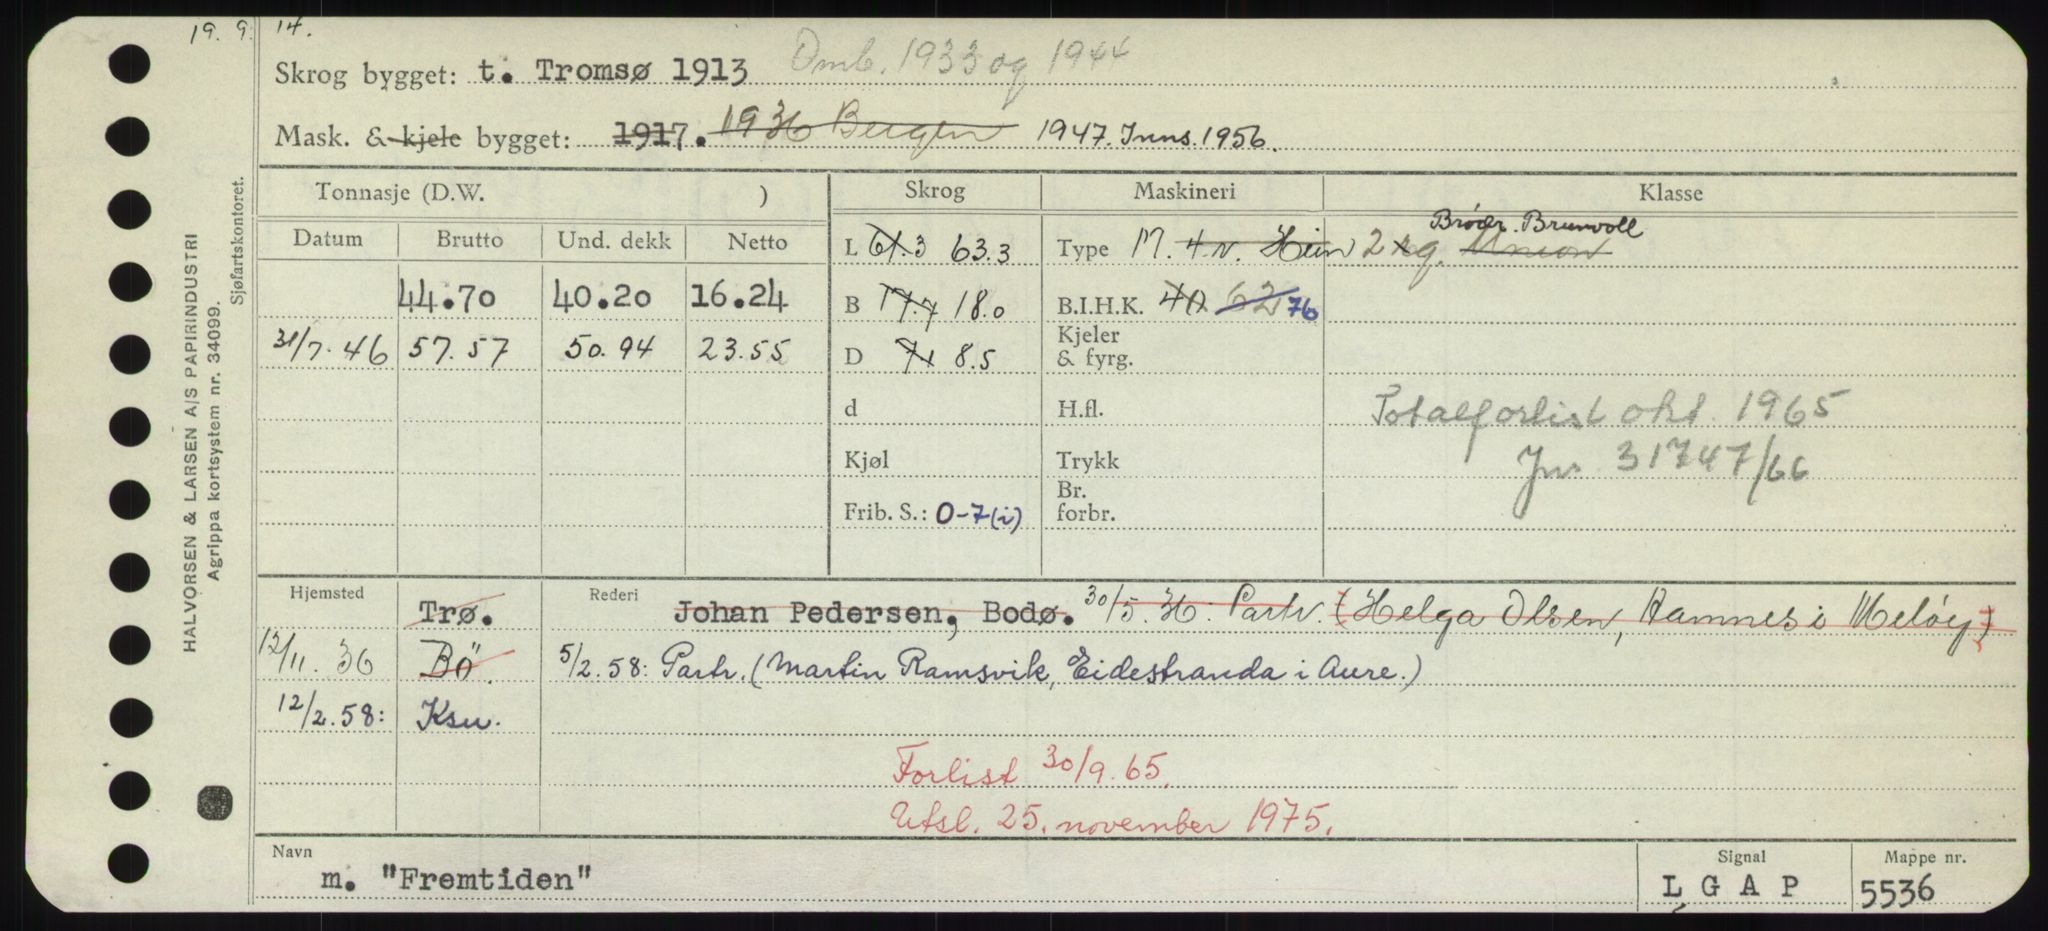 19. 9. 14.
Skrog bygget: t. Tromsø 1913 Omb. 1933 og 1944
Mask. & kjele bygget: 1917. 1936 Bergen 1947. Inns. 1956.
Tonnasje (D.W. ) Skrog Maskineri Klasse
Datum Brutto Und. dekk Netto L 61.3 63.3 Type M. 4 v. Hein 2 syl. Union Brødr. Brunvoll
44.70 40.20 16.24 B 17.7 18.0 B.I.H.K. 40 62 76
31/7.46 57.57 50.94 23.55 D 7.1 8.5 Kjeler & fyrg.
d H.fl. Totalforlist okt. 1965
Kjøl Trykk Jnr 31747/66
Frib. S.: 0-7(i) Br. forbr.
Hjemsted Trø. Rederi Johan Pedersen, Bodø. 30/5.36: Partr. (Helga Olsen, Hamnes i Meløy)
12/11.36 Bö. 5/2.58: Partr. (Martin Ramsvik, Eidestranda i Aure.)
12/2.58: Ksu.
Forlist 30/9.65.
Utsl. 25. november 1975.
Navn Signal Mappe nr.
m. "Fremtiden" L G A P 5536
HALVORSEN & LARSEN A/S PAPIRINDUSTRI
Agrippa kortsystem nr. 34099.
Sjøfartskontoret.